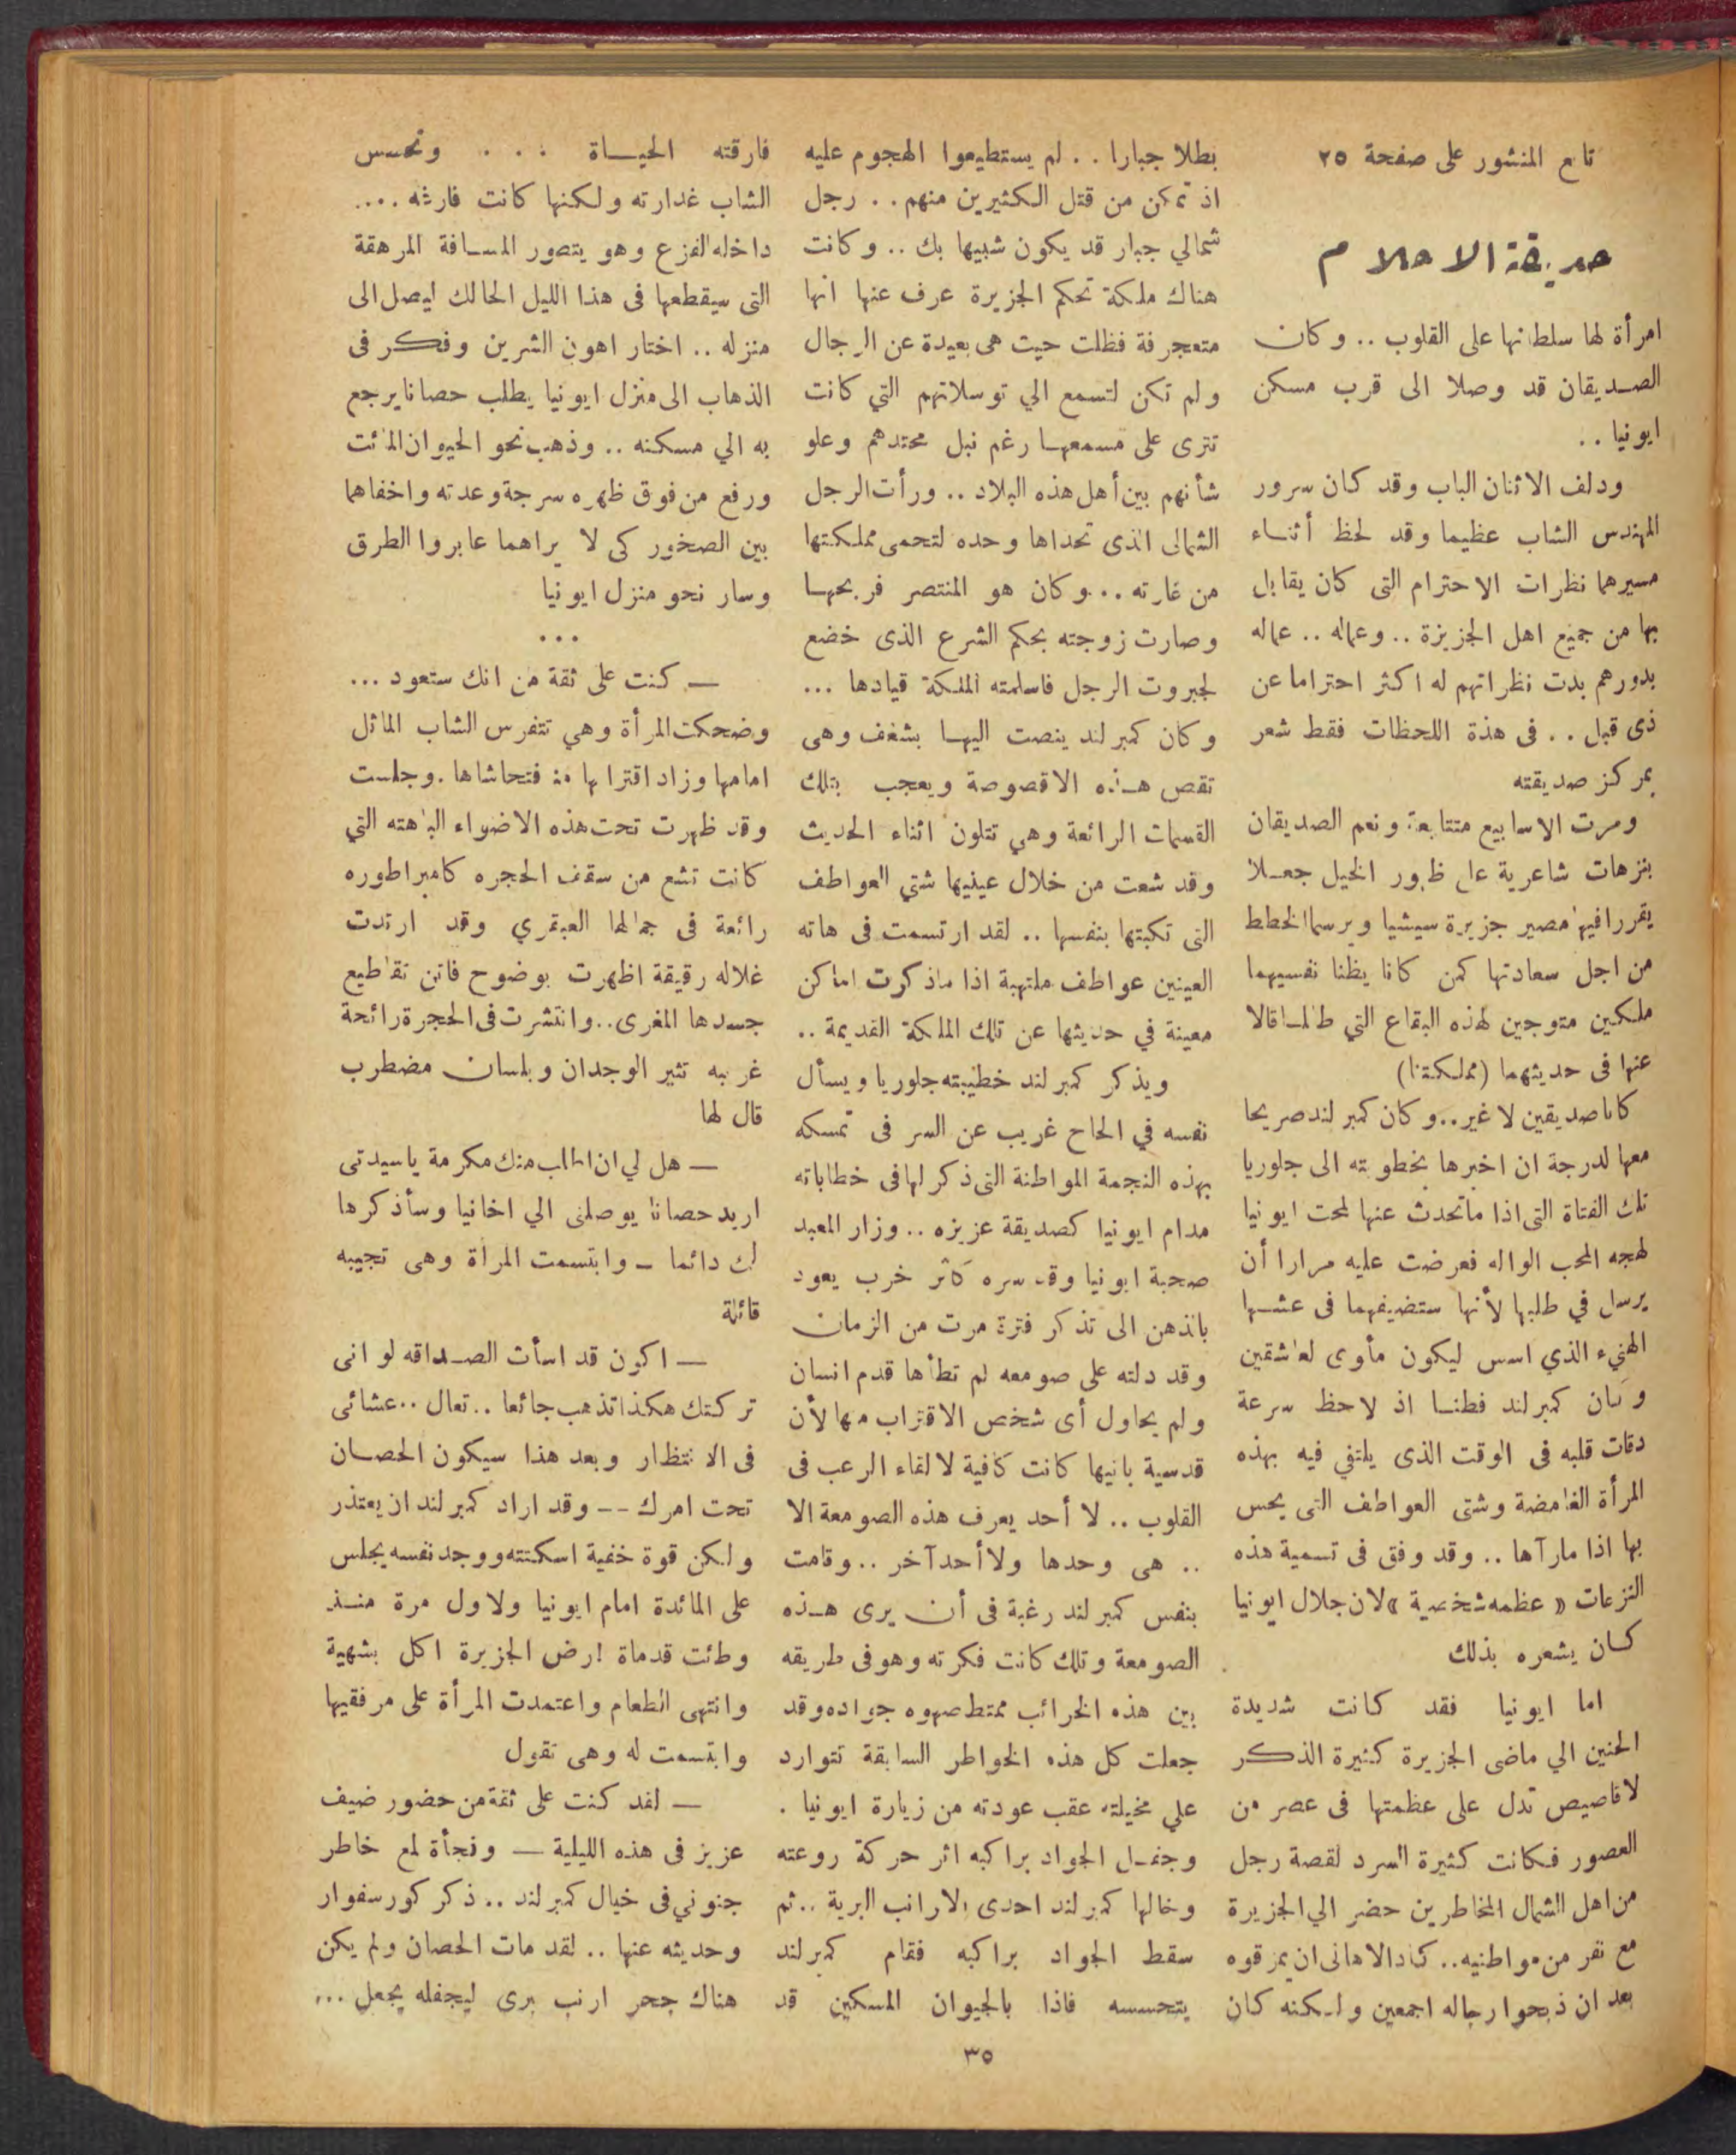 تابع المنشور على صفحة ٢٥
حديقة الاحلام
امرأة لها سلطانها على القلوب .. وكان
الصديقان قد وصلا الى قرب مسكن
ايونيا ..
ودلف الاثنان الباب وقد كان سرور
المهندس الشاب عظيما وقد لحظ أثناء
مسيرهما نظرات الاحترام التى كان يقابل
بها من جميع اهل الجزيزة .. وعماله .. عماله
بدورهم بدت نظراتهم له اكثر احتراما عن
ذى قبل .. فى هذة اللحظات فقط شعر
بمركز صديقته
ومرت الاسابيع متتابعة ونعم الصديقان
بنزهات شاعرية على ظهور الخيل جعلا
يقررا فيها مصير جزيرة سيشيا ويرسما الخطط
من اجل سعادتها كمن كانا يظنا نفسيهما
ملكين متوجين لهذه البقاع التي طالما قالا
عنها فى حديثهما (مملكتنا)
كانا صديقين لا غير .. وكان كمبرلند صريحا
معها لدرجة ان اخبرها بخطوبته الى جلوريا
تلك الفتاة التى اذا ماتحدث عنها لمحت ايونيا
لهجه المحب الواله فعرضت عليه مرارا أن
يرسل في طلبها لأنها ستضيفهما فى عشها
الهنيء الذي اسس ليكون مأوى لعاشقين
وكان كمبرلند فطنا اذ لاحظ سرعة
دقات قلبه فى الوقت الذى يلتقي فيه بهذه
المرأة الغامضة وشتى العواطف التى يحس
بها اذا مارآها .. وقد وفق فى تسمية هذه
النزعات « عظمه شخصية » لان جلال ايونيا
كان يشعره بذلك
اما ايونيا فقد كانت شديدة
الحنين الي ماضى الجزيرة كثيرة الذكر
لاقاصيص تدل على عظمتها فى عصر من
العصور فكانت كثيرة السرد لقصة رجل
من اهل الشمال المخاطرين حضر الي الجزيرة
مع نفر من مواطنيه .. كاد الاهالى ان يمزقوه
بعد ان ذبحوا رجاله اجمعين ولكنه كان
بطلا جبارا .. لم يستطيعوا الهجوم عليه
اذ تمكن من قتل الكثيرين منهم .. رجل
شمالي جبار قد يكون شبيها بك .. وكانت
هناك ملكة تحكم الجزيرة عرف عنها انها
متعجرفة فظلت حيت هى بعيدة عن الرجال
ولم تكن لتسمع الي توسلاتهم التي كانت
تترى على مسمعها رغم نبل محتدهم وعلو
شأنهم بين أهل هذه البلاد .. ورأت الرجل
الشمالى الذى تحداها وحده لتحمى مملكتها
من غارته .. وكان هو المنتصر فربحها
وصارت زوجته بحكم الشرع الذى خضع
لجبروت الرجل فاسلمته الملكة قيادها ...
وكان كمبرلند ينصت اليها بشغف وهى
تقص هذه الاقصوصة ويعجب بتلك
القسمات الرائعة وهي تتلون اثناء الحديث
وقد شعت من خلال عينيها شتي العواطف
التى تكبتها بنفسها .. لقد ارتسمت فى هاته
العينين عواطف ملتهبة اذا ماذكرت اماكن
معينة في حديثها عن تلك الملكة القديمة ..
ويذكر كمبرلند خطيبته جلوريا ويسأل
نفسه في الحاح غريب عن السر فى تمسكه
بهذه النجمة المواطنة التى ذكر لها فى خطاباته
مدام ايونيا كصديقة عزيزه .. وزار المعبد
صحبة ايونيا وقد سره كأثر خرب يعود
بالذهن الى تذكر فترة مرت من الزمان
وقد دلته على صومعه لم تطأها قدم انسان
ولم يحاول أى شخص الاقتراب منها لأن
قدسية بانيها كانت كافية لالقاء الرعب فى
القلوب .. لا أحد يعرف هذه الصومعة الا
.. هى وحدها ولا أحد آخر .. وقامت
بنفس كمبرلند رغبة فى أن يرى هذه
الصومعة وتلك كانت فكرته وهو فى طريقه
بين هذه الخرائب ممتط صهوه جواده وقد
جعلت كل هذه الخواطر السابقة تتوارد
علي مخيلته عقب عودته من زيارة ايونيا .
وجفل الجواد براكبه اثر حركة روعته
وخالها كمبرلند احدى الارانب البرية .. ثم
سقط الجواد براكبه فقام كمبرلند
يتحسسه فاذا بالحيوان المسكين قد
فارقته الحياة ... وتحسس
الشاب غدارته ولكنها كانت فارثه ....
داخله الفزع وهو يتصور المسافة المرهقة
التى سيقطعها فى هذا الليل الحالك ليصل الى
منزله .. اختار اهون الشرين وفكر فى
الذهاب الى منزل ايونيا يطلب حصانا يرجع
به الي مسكنه .. وذهب نحو الحيوان المائت
ورفع من فوق ظهره سرجة وعدته واخفاهما
بين الصخور كى لا يراهما عابروا الطرق
وسار نحو منزل ايونيا
...
— كنت على ثقة من انك ستعود ...
وضحكت المرأة وهي تتفرس الشاب الماثل
امامها وزاد اقترابها منه فتحاشاها . وجلست
وقد ظهرت تحت هذه الاضواء الباهته التي
كانت تشع من سقف الحجره كامبراطوره
رائعة فى جمالها العبقري وقد ارتدت
غلاله رقيقة اظهرت بوضوح فاتن تقاطيع
جسدها المغرى .. وانتشرت فى الحجرة رائحة
غريبه تثير الوجدان وبلسان مضطرب
قال لها
— هل لي ان اطلب منك مكرمة ياسيدتى
اريد حصانا يوصلنى الي اخانيا وسأذكرها
لك دائما — وابتسمت المرأة وهى تجيبه
قائلة
— اكون قد اسأت الصداقه لو انى
تركتك هكذا تذهب جائعا .. تعال .. عشائى
فى الانتظار وبعد هذا سيكون الحصان
تحت امرك -- وقد اراد كمبرلند ان يعتذر
ولكن قوة خفية اسكتته ووجد نفسه يجلس
على المائدة امام ايونيا ولاول مرة منذ
وطئت قدماة ارض الجزيرة اكل بشهية
وانتهى الطعام واعتمدت المرأة على مرفقيها
وابتسمت له وهى تقول
— لقد كنت على ثقة من حضور ضيف
عزيز فى هذه الليلية — وفجأة لمع خاطر
جنوني فى خيال كمبرلند .. ذكر كورسفوار
وحديثه عنها .. لقد مات الحصان ولم يكن
هناك جحر ارنب برى ليجفله يجعل ...
٣٥